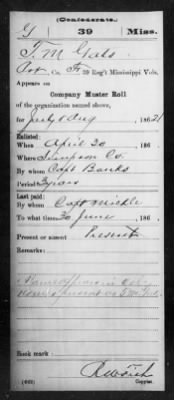 (Confederate.)
G 39 Miss.
T. M. Gabs
Pvt, Co. F, 39 Reg't Mississippi Vols.
Appears on
Company Muster Roll
of the organization named above,
for July & Aug, 1862
Enlisted:
When April 30, 186
Where Simpson Co.
By whom Capt Banks
Period 3 years
Last paid:
By whom Capt Mickle
To what time 30 June, 186
Present or absent Present
Remarks:
Name appears in
as T. M.
Book mark:
(642) Copyist.